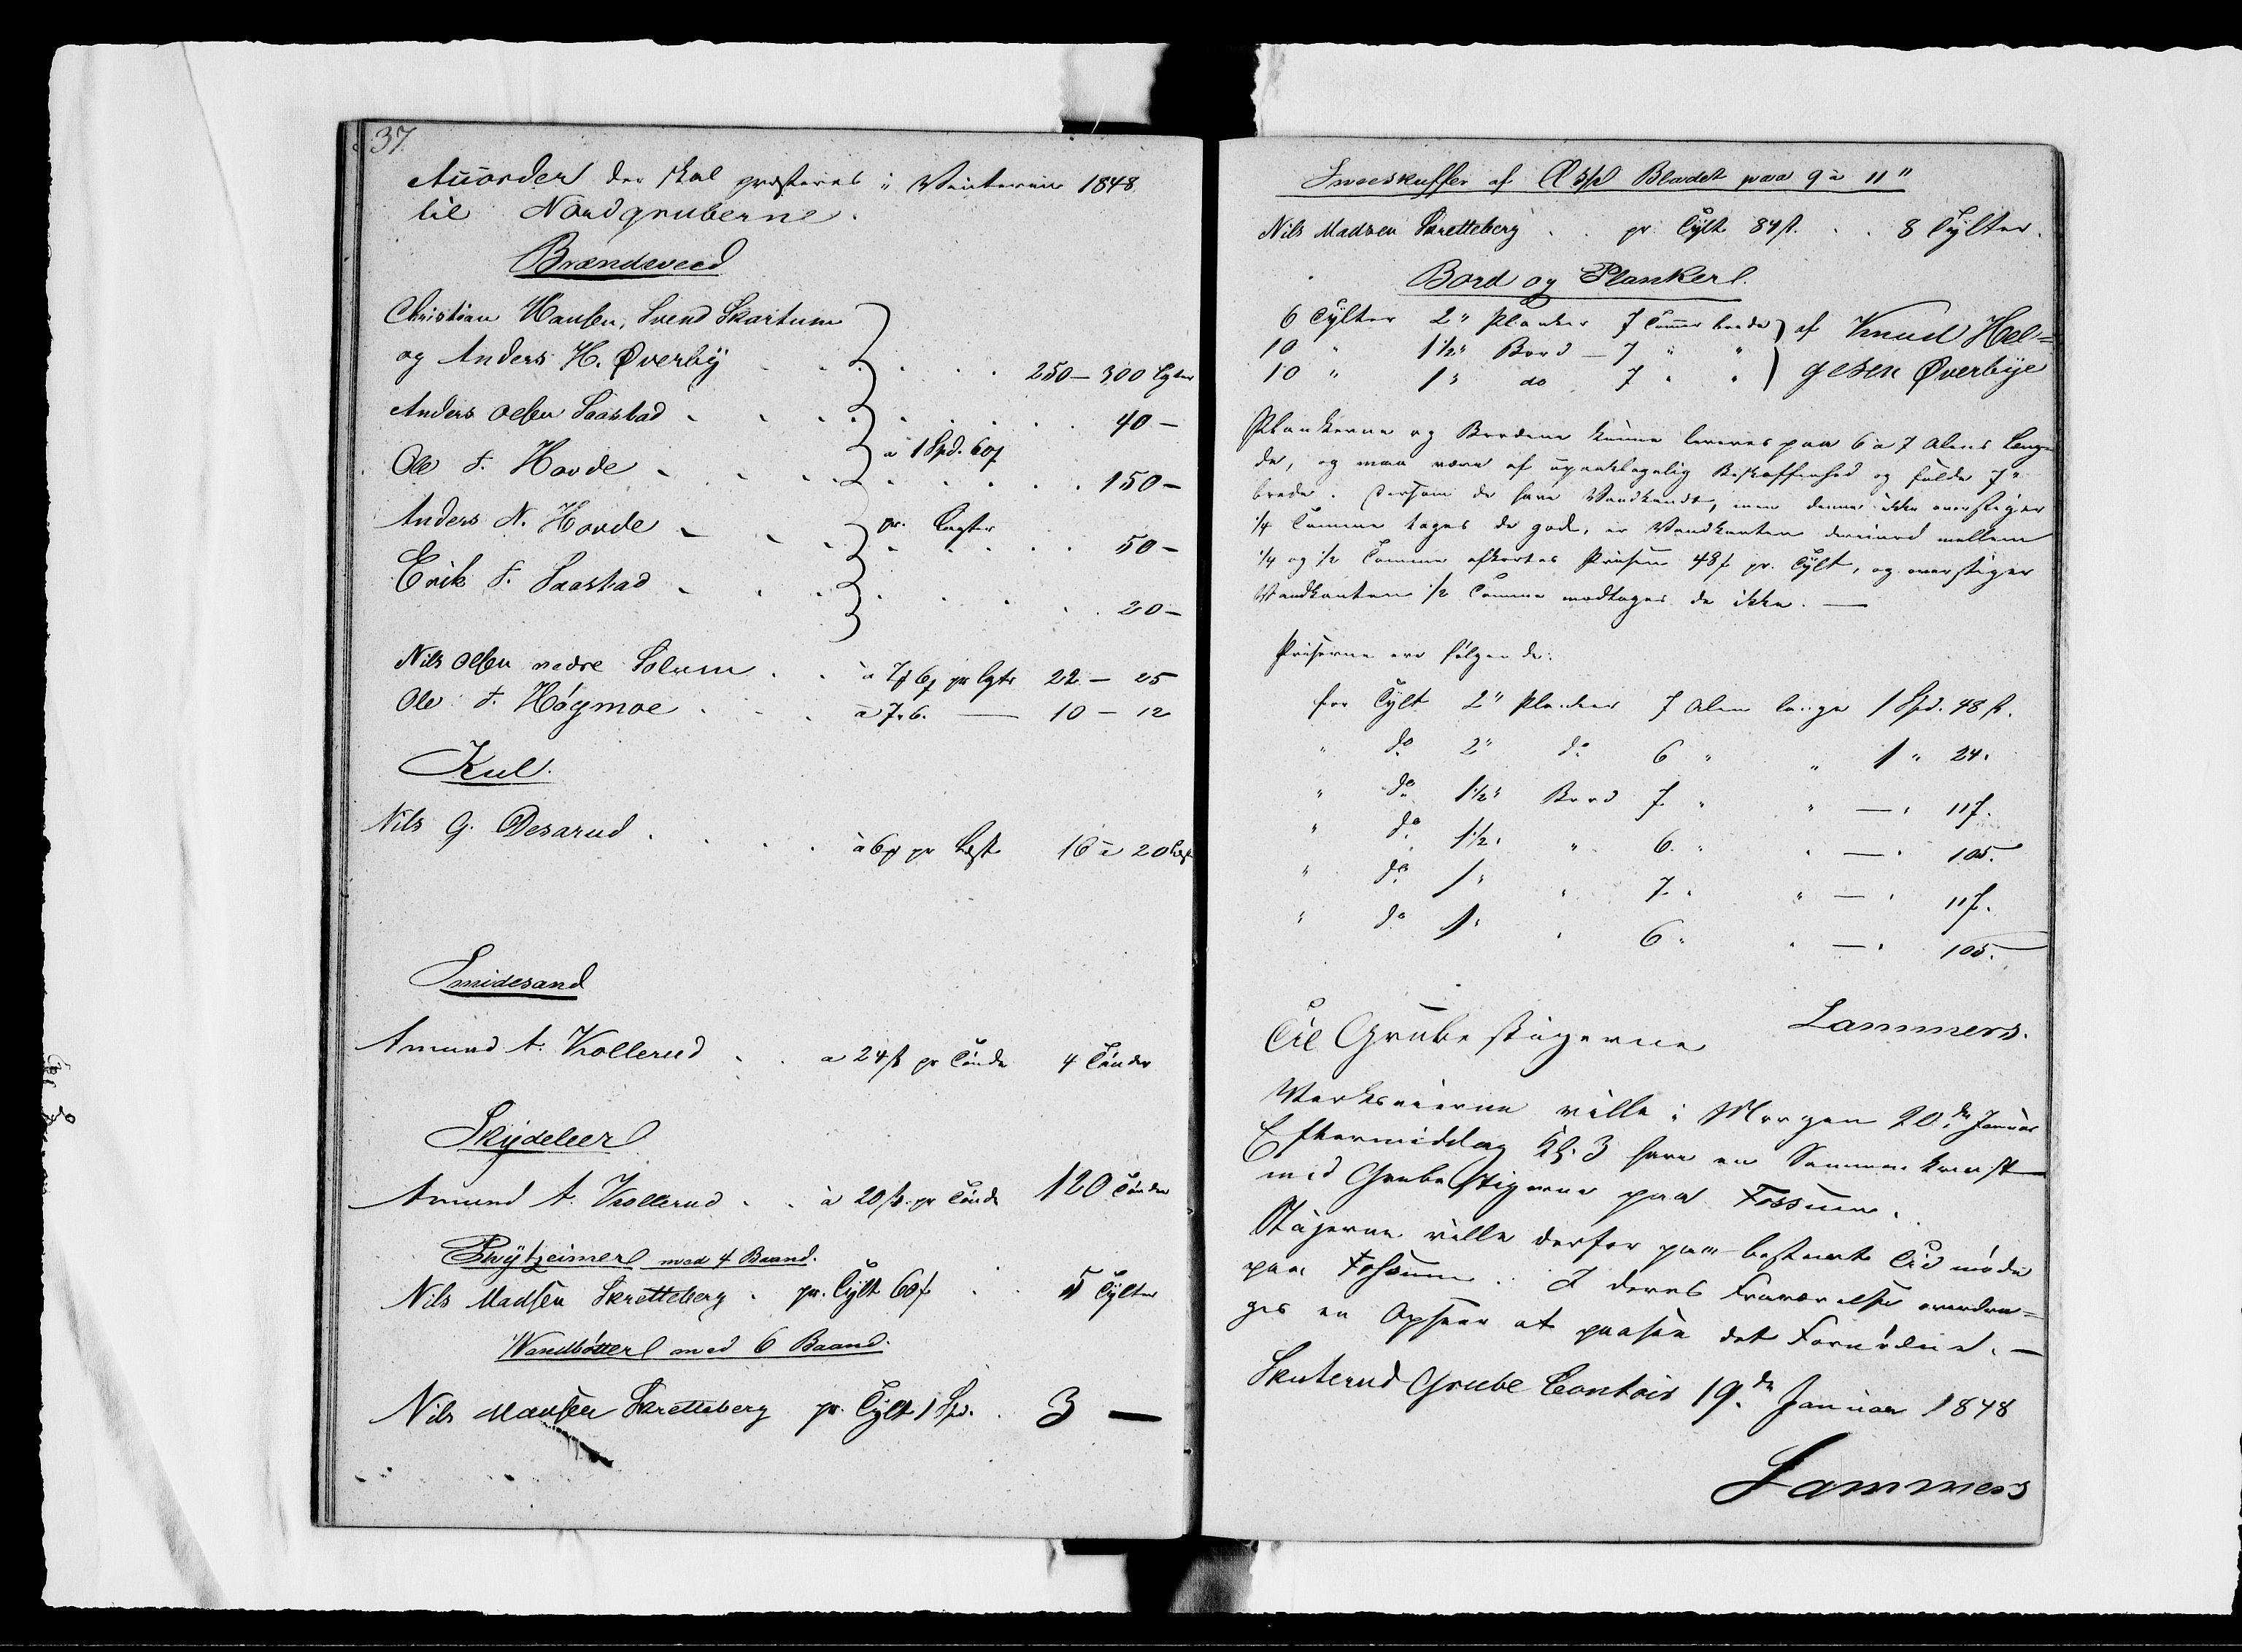 37.
Accorder der skal præsteres i Vinteren 1848
til Nordgruberne.
Brændeveed
Christian Hansen, Svend Skartum
og Anders H. Øverby . . . . 250 – 300 Lgter
Anders Olsen Saastad . . . . 40 –
Ole F. Hovde . . . à 1 Spd. 60 ſ . . . 150 –
Anders N. Hovde . . . pr. Lagter . . . 50 –
Erik F. Saastad . . . . 20 –
Nils Olsen nedre Solum . . à 7 ſ 6 ſ pr Lgtr 22 – 25
Ole F. Høgmoe . . . à 7. 6. — 10 – 12
Kul.
Nils G. Desarud . . . . à 6 ſ pr Læst 16 à 20 Læst
Smidesand
Amund A. Kollerud . . à 24 ſ pr Tønde 4 Tønder
Skydeleer
Amund A. Kollerud . . à 20 ſ. pr Tønde 120 Tønder
med 4 Baand.
Nils Madsen Skretteberg . pr. Tylt 60 ſ . . 5 Tylter
Vandbøtter med 6 Baand.
Nils Madsen Skretteberg pr. Tylt 1 Spd. . 3 —
Sneeskuffer af Æspe Bladet paa 9 à 11"
Nils Madsen Skretteberg . . pr. Tylt 84 ſ. . . 8 Tylter.
Bord og Planker.
6 Tylter 2" Planker 7 Tommer brede } af Knud Hel=
10 " 1½" Bord – 7 " "
10 " 1" do 7 " " } gesen Øverbye
Plankerne og Bordene kunne leveres paa 6 à 7 Alens Læng=
de, og maa være af upaaklagelig Beskaffenhed og fulde 7"
brede. Dersom de have Vandkandt, men denne ikke overstiger
¼ Tomme tages de gode, er Vandkanten derimod mellem
¼ og ½ Tomme afkortes Prisen 48 ſ pr. Tylt, og overstiger
Vandkanten ½ Tomme modtages de ikke. —
Priserne ere følgende:
for Tylt 2" Planker 7 Alen lange 1 Spd. 48 ſ.
" do 2" do 6 " " 1 " 24.
" do 1½" Bord 7 " " — " 117.
" do 1½" " 6 " " — " 105.
" do 1" " 7 " " — " 117.
" do 1" " 6 " " — " 105.
Lammers.
Til Grubestigerne
Værkseierne ville i Morgen 20de Januar
Eftermiddag Kl. 3 have en Sammenkomst
med Grubestigerne paa Fossum.
Stigerne ville derfor paa bestemte Tid møde
paa Fossum. I deres Fraværelse overdra=
ges en Opseer at paasee det Fornødne. —
Skuterud Grube Contoir 19de Januar 1848
Lammers